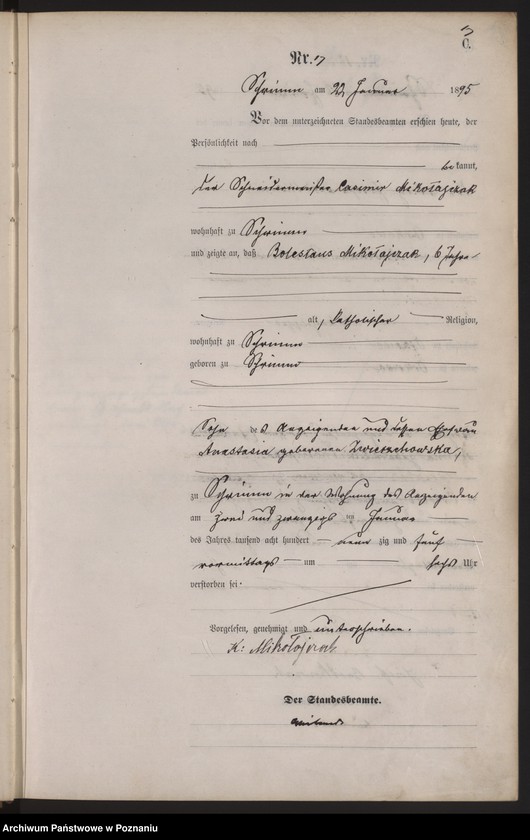 7
C.
Nr. 7
Schrimm am 22 Januar 1895
Vor dem unterzeichneten Standesbeamten erschien heute, der
Persönlichkeit nach
be kannt,
der Schneidermeister Casimir Mikołajczak
wohnhaft zu Schrimm
und zeigte an, daß Boleslaus Mikołajczak, 6 Jahre
alt, katholischer Religion,
wohnhaft zu Schrimm
geboren zu Schrimm
Sohn des Anzeigenden und dessen Ehefrau
Anastasia geborenen Zwierzchowska,
zu Schrimm in der Wohnung des Anzeigenden
am zwei und zwanzigsten Januar
des Jahres tausend acht hundert neun zig und fünf
vormittags um sechs Uhr
verstorben sei.
Vorgelesen, genehmigt und unterschrieben.
K: Mikołajczak
Der Standesbeamte.
Archiwum Państwowe w Poznaniu